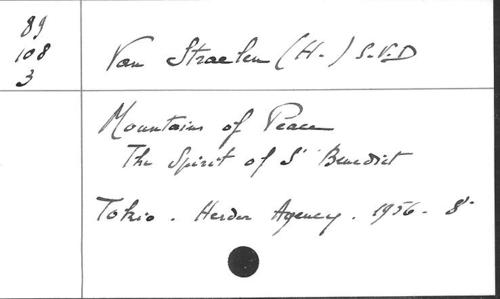 89
108
3
Van Straelen (H.) S.V.D
Mountains of Peace
The Spirit of S' Benedict
Tokio. Herder Agency. 1956. 8°